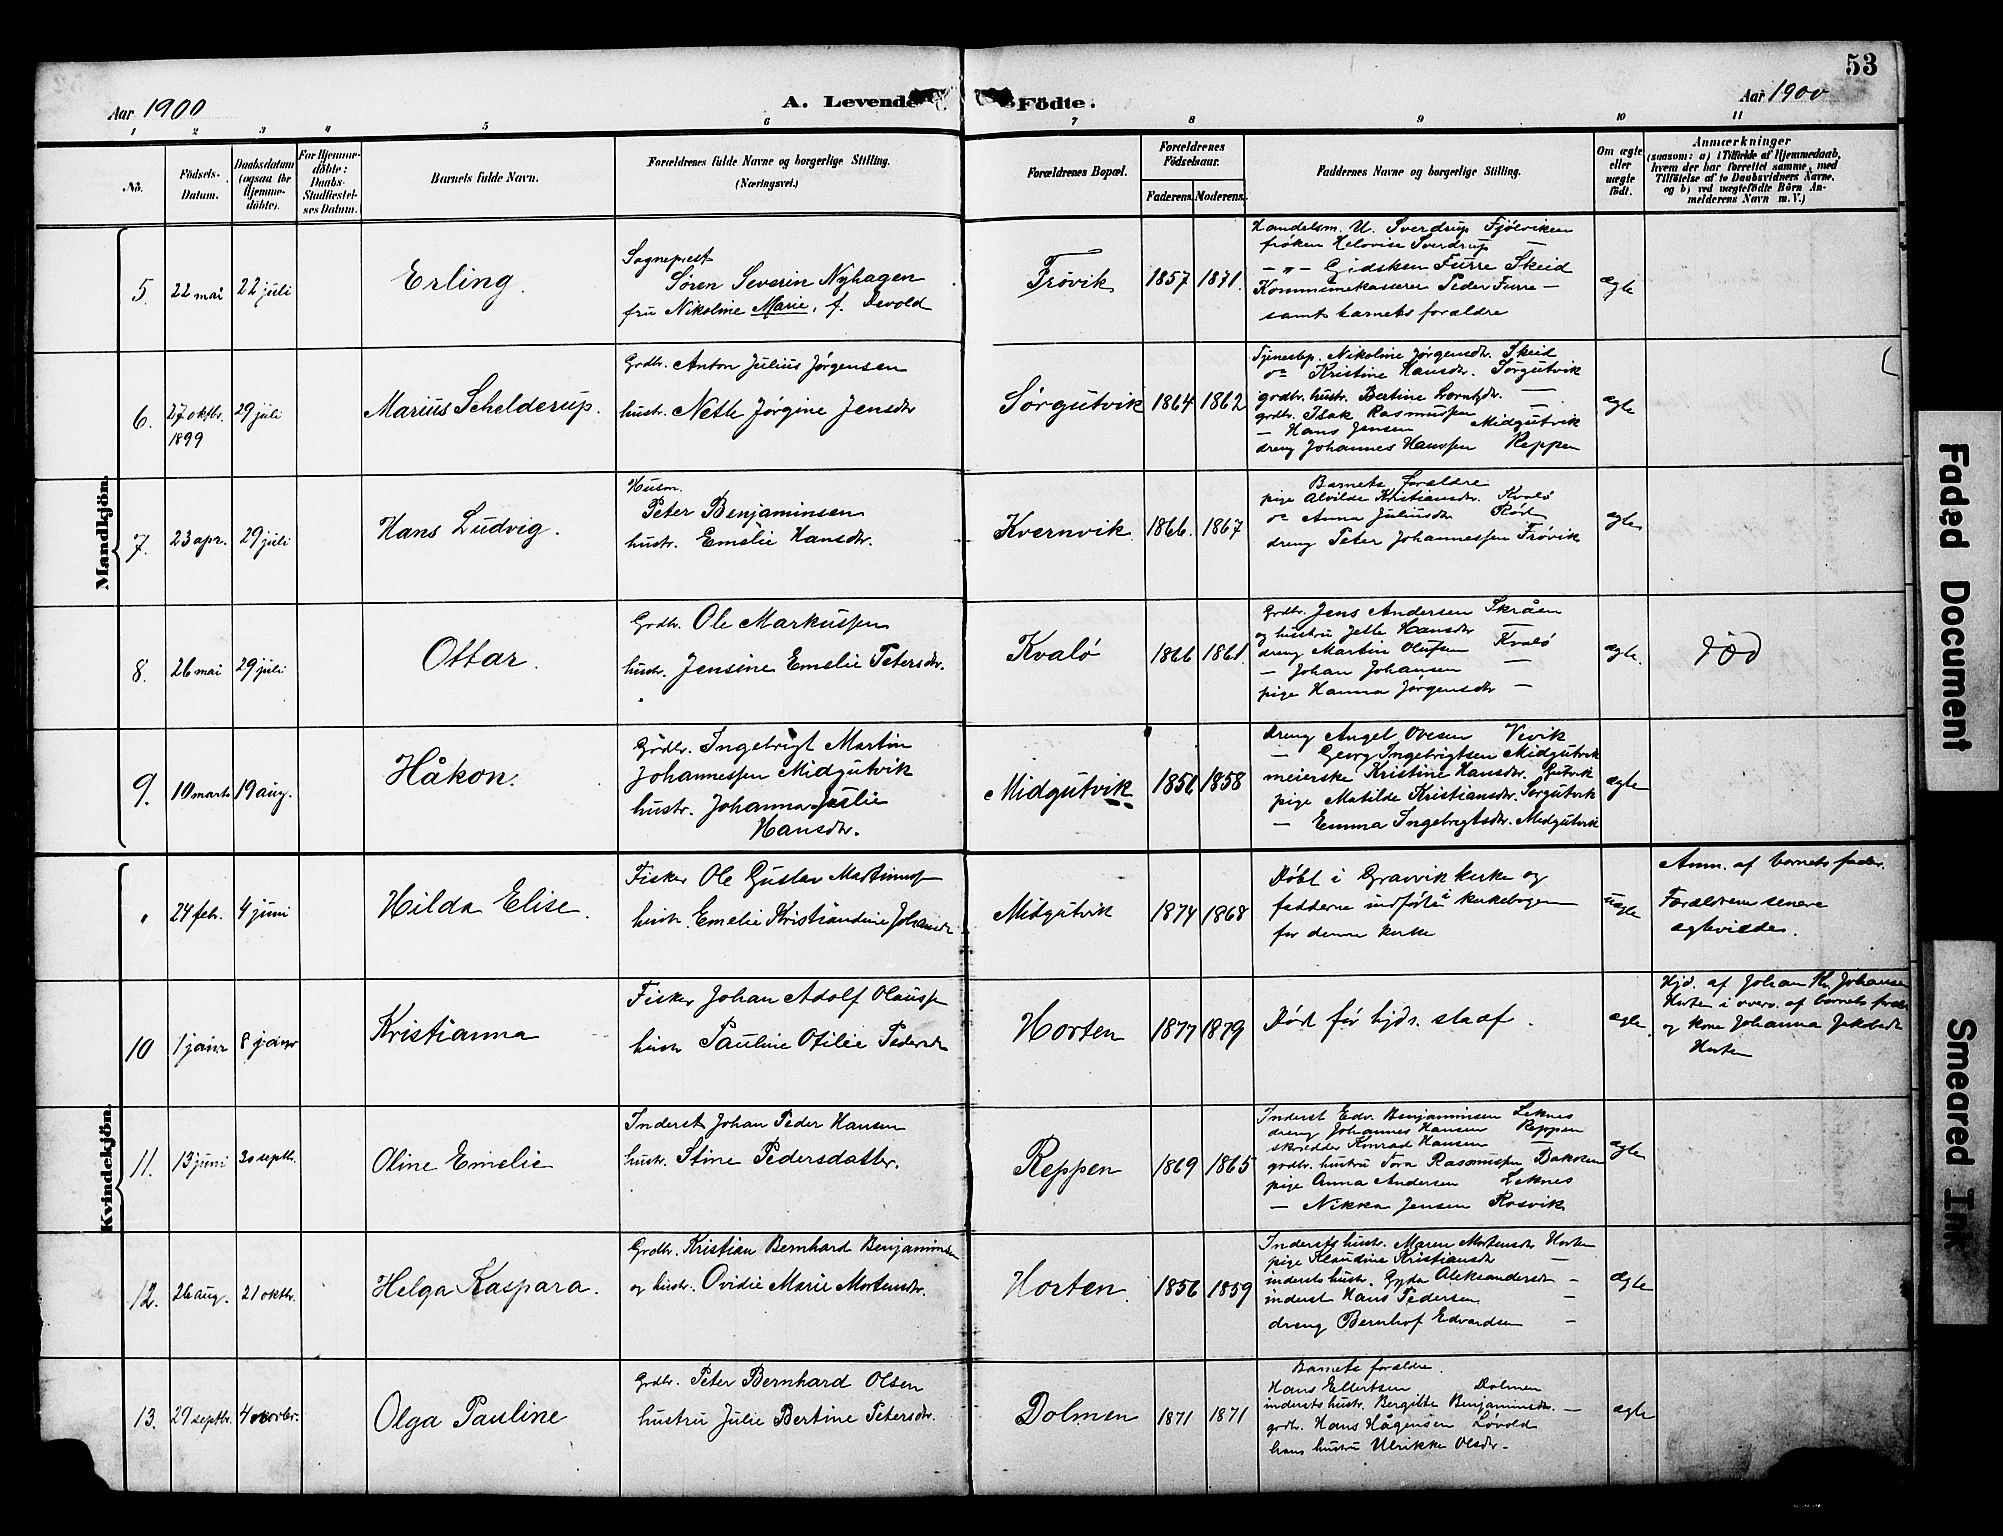 53
Aar 1900
A. Levende Födte.
Aar 1900
1 2 3 4 5 6 7 8 9 10 11
No.
Födsels-Datum.
Daabsdatum (ogsaa for Hjemme-döbte).
For Hjemme-döbte: Daabs-Stadfæstel-ses Datum.
Barnets fulde Navn.
Forældrenes fulde Navne og borgerlige Stilling.
(Næringsvei.)
Forældrenes Bopæl.
Forældrenes Födselsaar.
Faderens. Moderens.
Faddernes Navne og borgerlige Stilling.
Om ægte eller uægte födt.
Anmærkninger
(saasom: a) i Tilfælde af Hjemmedaab,
hvem der har forrettet samme, med
Tilföielse af to Daabsvidners Navne,
og b) ved uægtefödte Börn An-
melderens Navn m. V.)
Mandkjön.
5. 22 mai 22 juli
Erling.
Sogneprest
Søren Severin Nyhagen
fru Nikoline Marie, f. Devold
Frøvik 1857 1871.
Handelsm. U. Sverdrup Fjölviken
frøken Helovise Sverdrup —
— " — Gidsken Furre Skeid
Kommunekasserer Peder Furre —
samt barnets forældre
ægte
6. 27 oktbr. 1899 29 juli
Marius Schelderup.
Grdbr. Anton Julius Jørgensen
hustr. Nette Jørgine Jensdtr
Sørgutvik 1864 1862
Tjenestep. Nikoline Jørgensdtr. Skeid
do Kristine Hansdtr. Sørgutvik
grdbr. hustr. Bertine —
grdbr. Isak Rasmussen —
— Hans Jensen Midgutvik
dreng Johannes Hanssen Reppen
ægte
7. 23 apr. 29 juli
Hans Ludvig.
Husm.
Peter Benjaminsen
hustr. Emelie Hansdtr.
Kvernvik 1866. 1867
Barnets forældre
pige Alvilde Kristiansdtr. Kvalø
do Anna Juliusdtr Rød
dreng Peter Johannessen Frøvik
ægte
8. 26 mai 29 juli
Ottar.
Grdbr. Ole Markussen
hustr. Jensine Emelie Petersdtr.
Kvalø 1866 1861
Grdbr. Jens Andersen Skråen
og hustru Jette Hansdtr —
dreng Martin Olufsen Kvalø
— Johan Johansen —
pige Hanna Jørgensdtr —
ægte.
død
9. 10 marts 19 aug.
Håkon.
Grdbr. Ingebrigt Martin
Johannessen Midgutvik
hustr. Johanna Julie
Hansdtr.
Midgutvik 1856 1858
Dreng Angel Ovesen Vevik
— Georg Ingebrigtsen Midgutvik
meierske Kristine Hansdtr. Gutvik
pige Matilde Kristiansdtr. Sørgutvik
— Emma Ingebrigtsdtr. Midgutvik
ægte
Kvindekjön.
" 24 febr. 4 juni
Hilda Elise.
Fisker Ole Gustav Martinus
hustr. Emelie Kristiandine Johansdtr
Midgutvik 1874 1868
Døbt i Gravvik kirke og
fadderne indført i kirkebogen
for denne kirke
uægte
Anm. af barnets fader.
Forældrene senere
ægteviede.
10 1 januar 8 januar
Kristianna
Fisker Johan Adolf Olaussen
hustr. Pauline Otilie Pedersdtr
Horten 1877 1879
Død før hjds. staf.
ægte
Hjd. af Johan Kr. Johansen
Horten i overv. af barnets fader
og kone Johanna Jakobsdtr
Horten
11. 13 juni 30 septbr.
Oline Emelie
Inderst Johan Peder Hansen
hustr. Stine Pedersdatter.
Reppen 1869 1865
Inderst Edv. Benjaminsen Leknes
dreng Johannes Hansen Reppen
skredder Konrad Hansen —
grdbr. hustru Tora Rasmussen Bakken
pige Anna Andersen Leknes
— Nikka Jensen Rosvik
ægte
12. 26 aug. 21 oktbr.
Helga Kaspara.
Grdbr. Kristian Bernhard Benjaminsen
og hustr. Ovidie Marie Mortensdtr.
Horten. 1856 1859
Inderstshustr. Maren Mortensdtr Horten
pige Klaudine Kristiansdtr —
inderstshustr. Gyda Aleksandersdtr —
inderst Hans Pedersen —
dreng Bernhof Edvardsen —
ægte
13. 29 septbr. 4 novbr.
Olga Pauline
Grdbr. Peter Bernhard Olsen
hustru Julie Bertine Petersdtr.
Dolmen 1871 1871
Barnets forældre.
Hans Ellertsen Dolmen
inderstshustr. Bergitte Benjaminsdtr. —
grdbr. Hans Hågensen Løvold
hans hustru Ulrikke Olsdtr. —
ægte
Faded Document
Smeared Ink